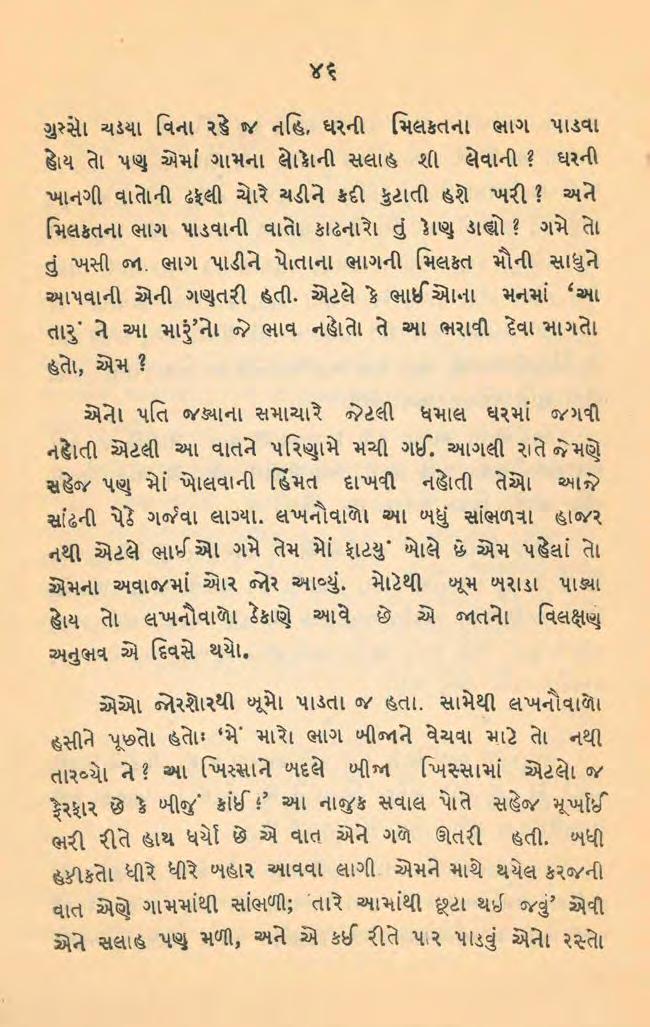 ૪૬
ગુસ્સો ચડયા વિના રહે જ નહિ. ઘરની મિલકતના ભાગ પાડવા
હોય તો પણ એમાં ગામના લોકોની સલાહ શી લેવાની ? ઘરની
ખાનગી વાતોની ઢફલી ચોરે ચડીને કદી કુટાતી હશે ખરી ? અને
મિલકતના ભાગ પાડવાની વાતો કાઢનારો તું કોણ ડાહ્યો ? ગમે તો
તું ખસી જા. ભાગ પાડીને પોતાના ભાગની મિલકત મૌની સાધુને
આપવાની એની ગણતરી હતી. એટલે કે ભાઈઓના મનમાં ‘આ
તારું ને આ મારું’નો જે ભાવ નહોતો તે આ ભરાવી દેવા માગતો
હતો, એમ ?
એનો પતિ જડ્યાના સમાચારે જેટલી ધમાલ ઘરમાં જગવી
નહોતી એટલી આ વાતને પરિણામે મચી ગઈ. આગલી રાતે જેમણે
સહેજ પણ મોં ખોલવાની હિંમત દાખવી નહોતી તેઓ આજે
સાંઢની પેઠે ગર્જવા લાગ્યા. લખનૌવાળો આ બધું સાંભળવા હાજર
નથી એટલે ભાઈઓ ગમે તેમ મોં ફાટયું બોલે છે એમ પહેલાં તો
એમના અવાજમાં ઓર જોર આવ્યું. મોટેથી બૂમ બરાડા પાડ્યા
હોય તો લખનૌવાળો ઠેકાણે આવે છે એ જાતનો વિલક્ષણ
અનુભવ એ દિવસે થયો.
એઓ જોરશોરથી બૂમો પાડતા જ હતા. સામેથી લખનૌવાળો
હસીને પૂછતો હતોઃ ‘મેં મારો ભાગ બીજાને વેચવા માટે તો નથી
તારવ્યો ને ? આ ખિસ્સાને બદલે બીજા ખિસ્સામાં એટલો જ
ફેરફાર છે કે બીજું કાંઈ !’ આ નાજુક સવાલ પોતે સહેજ મૂર્ખાઈ
ભરી રીતે હાથ ધર્યો છે એ વાત એને ગળે ઊતરી હતી. બધી
હકીકતો ધીરે ધીરે બહાર આવવા લાગી. એમને માથે થયેલ કરજની
વાત એણે ગામમાંથી સાંભળી; ‘તારે આમાંથી છૂટા થઈ જવું’ એવી
એને સલાહ પણ મળી, અને એ કઈ રીતે પાર પાડવું એનો રસ્તો